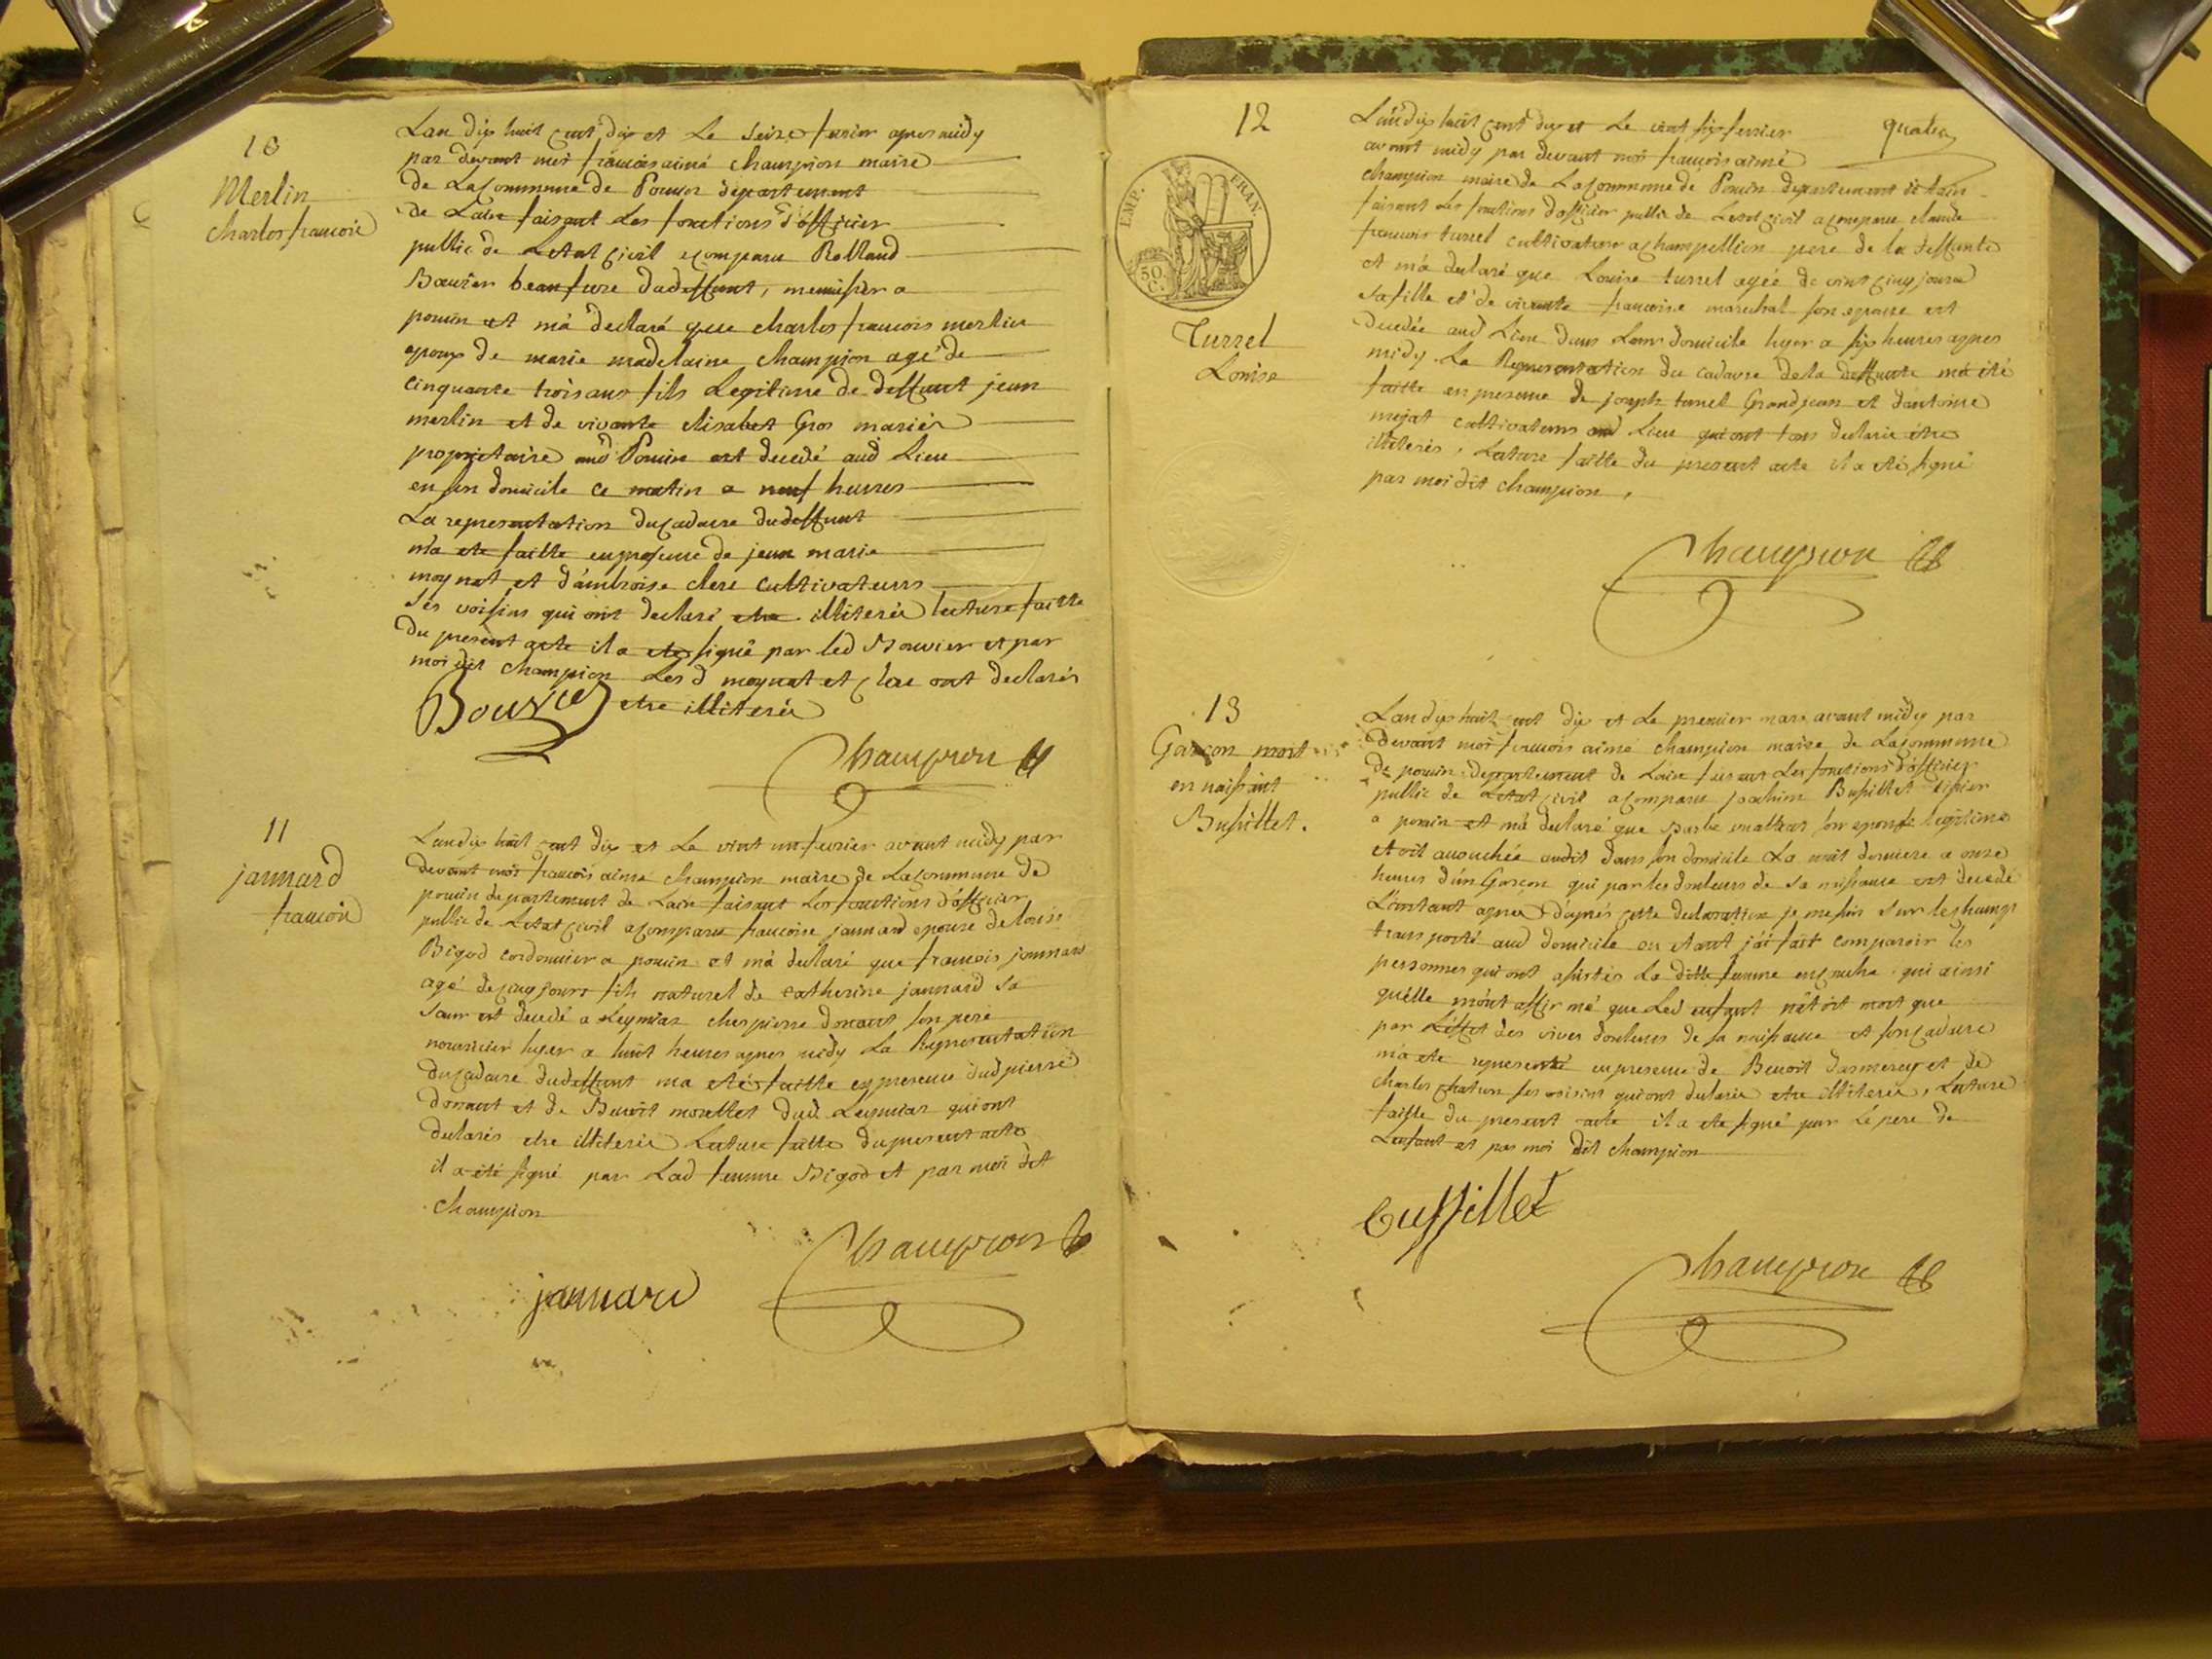 10
Merlin
charles francois
Lan dix huit cent dix et Le seize fevrier apres midy
par devant moi francois aimé champion maire
de La commune de Poncin departement
de Lain faisant Les fonctions d'officier
public de Letat civil a comparu Rolland
Bouvier beaufrere du deffunt, menuisier a
poncin et m'a declaré que charles francois merlin
epoux de marie madelaine champion agé de
cinquante trois ans fils Legitime de deffunt jean
merlin et de vivante elisabet Gros mariér
proprietaire aud Poncin est decedé aud Lieu
en son domicile ce matin a neuf heures
La representation du cadavre du deffunt
m'a ete faitte en presence de jean marie
moynat et d'ambroise clerc cultivateurs
ses voisins qui ont declaré etre illiterés lecture faitte
du present acte il a ete signé par led Bouvier et par
moi dit champion Les d moynat et clerc ont declarés
etre illiterés
Bouvier
Champion
11
jannard
francois
Lan dix huit cent dix et Le vint un fevrier avant midy par
devant moi francois aimé champion maire de La commune de
poncin departement de Lain faisant Les fonctions d'officier
public de Letat civil a comparu francoise jannard epouse de louis
Bigod cordonnier a poncin et m'a declaré que francois jannard
agé de cinq jours fils naturel de catherine jannard sa
soeur est decedé a Leymiat ches pierre donant son pere
nourricier hyer a huit heures apres midy La Representation
du cadavre du deffunt ma eté faitte en presence dud pierre
donant et de Benoit morellet dud Leymiat qui ont
declarés etre illiterés Lecture faitte du present acte
il a eté signé par Lad femme Bigod et par moi dit
champion
Champion
jannard
12
quatre
EMP. FRAN.
50 C.
Turrel
Louise
Lan dix huit cent dix et Le vint six fevrier
avant midy par devant moi francois aimé
champion maire de La commune de Poncin departement de Lain
faisant Les fonctions d'officier public de Letat civil a comparu claude
francois turrel cultivateur a champeillion pere de la deffunte
et m'a declaré que Louise turrel agée de vint cinq jours
sa fille et de vivante francoise marechal son epouse est
decedée aud Lieu dans Leur domicile hyer a six heures apres
midy. La Representation du cadavre de la deffunte m'a été
faitte en presence de joseph turrel Grandjean et d'antoine
mojat cultivateurs aud Lieu qui ont tous declarés etre
illiterés, Lecture faitte du present acte il a eté signé
par moi dit champion,
Champion
13
Garçon mort
en naissant
Bussillet.
Lan dix huit cent dix et Le premier mars avant midy par
devant moi francois aimé champion maire de La commune
de poncin departement de Lain faisant Les fonctions d'officier
public de Letat civil a comparu joachim Bussillet
a poncin et m'a declaré que son epouse legitime
etoit accouchée audit dans son domicile La nuit derniere a onze
heures d'un Garçon qui par les douleurs de sa naissance est decedé
L'instant apres d'aprés cette declaration je me suis sur le champ
transporté aud domicile ou etant j'ai fait comparoir les
personnes qui ont assistés La ditte femme en couche qui ainsi
qu'elle m'ont affirmé que Led enfant n'étoit mort que
par L'effet des vives douleurs de sa naissance et son cadavre
m'a ete representé en presence de Benoit et de
charles chatron ses voisins qui ont declarés etre illiterés, Lecture
faitte du present acte il a ete signé par Le pere de
Lenfant et par moi dit champion
Bussillet
Champion